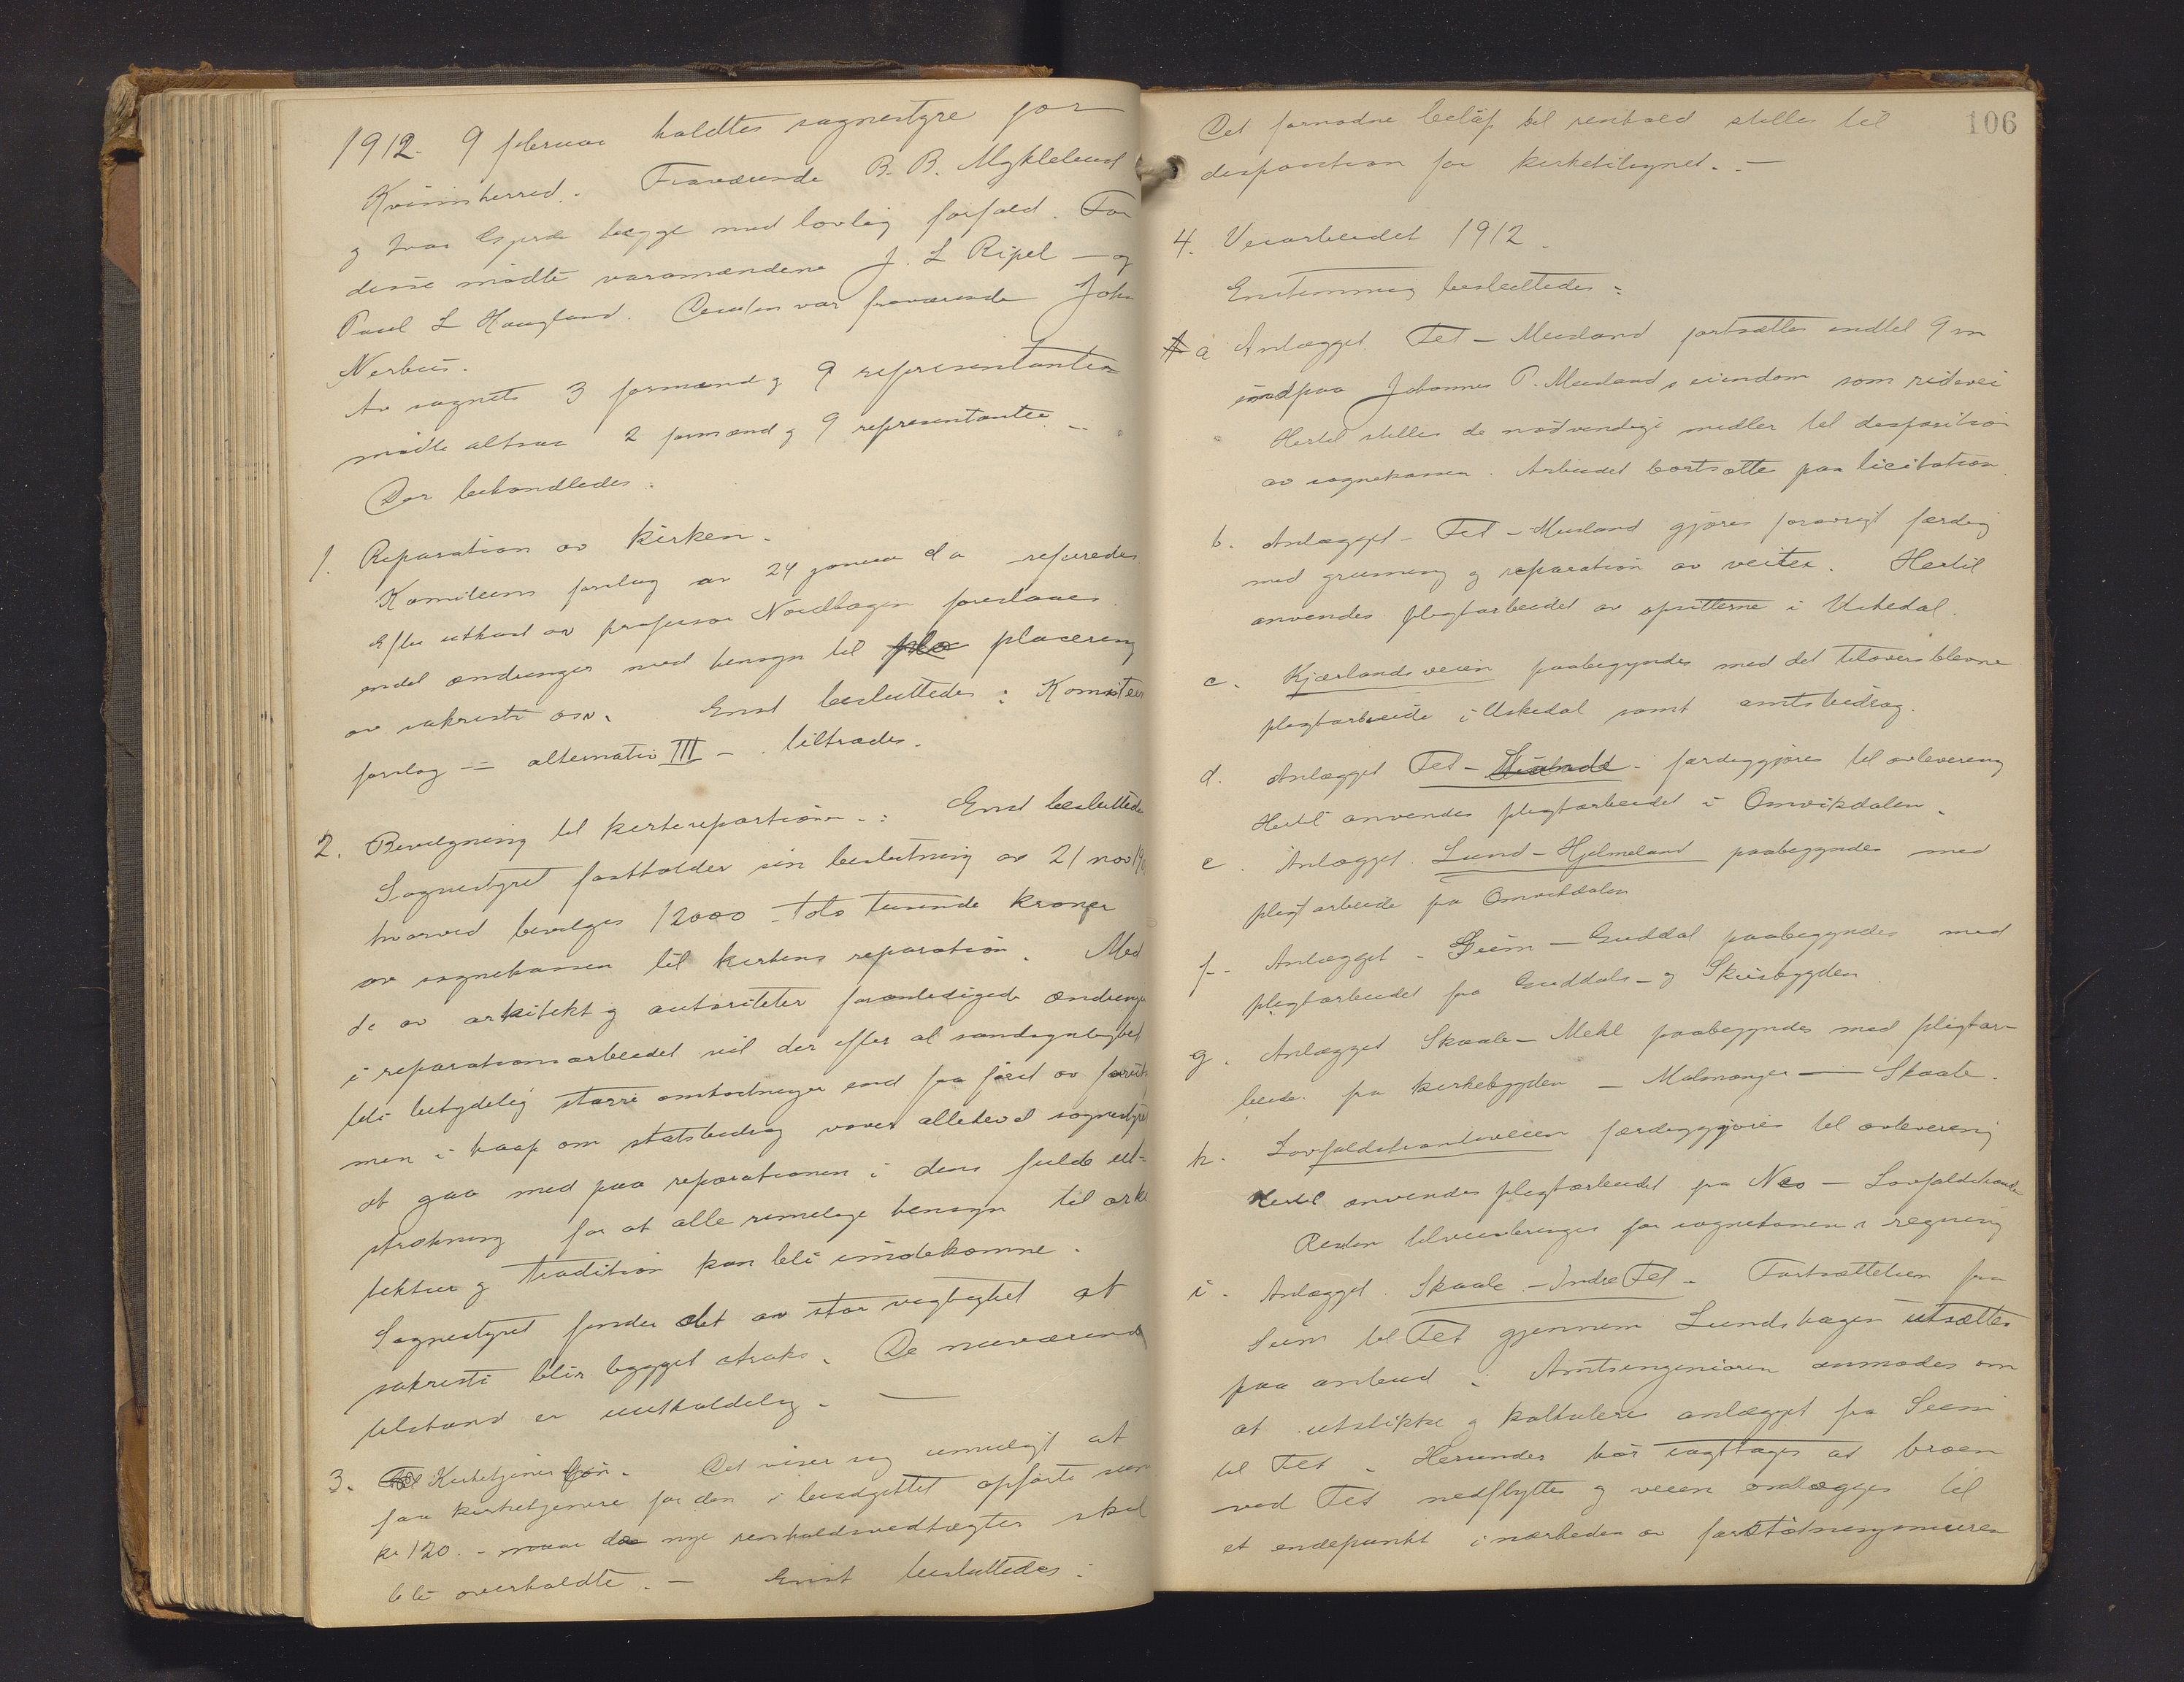 1912. 9 februar holdtes sognestyre for
Kvinnherred. Fraværende B. B. Myklebust
og Ivar Gjerde begge med lovlig forfald. For
disse mødte varamændene J. L Ripel — og
Paul L Haugland. Desuten var fraværende John
Nerhus.
Av sognets 3 formænd og 9 representanter
mødte altsaa 2 formænd og 9 representanter. —
Der behandledes:
1. Reparation av kirken.
Komiteens forslag av 24 januar d a refereredes
Efter utkast av professor Nordhagen foreslaaes
endel ændringer med hensyn til pla placering
av sakristi osv. Enst besluttedes: Komiteens
forslag — alternativ III — tiltrædes.
2. Bevilgning til kirkereparation. : Enst besluttedes
Sognestyret fastholder sin beslutning av 21 nov 19
hvorved bevilges 12000 – tolv tusende kroner
av sognekassen til kirkens reparation. Med
de av arkitekt og autoriteter foranledigede ændringer
i reparationsarbeidet vil der efter al sandsynlighet
bli betydelig større omkostninger end fra først av forut
men i haap om statsbidrag vover allikevel sognestyret
at gaa med paa reparationen i dens fulde ut-
strækning for at alle rimelige hensyn til arki
tektur og tradition kan bli imøtekomne.
Sognestyret finder det av stor vigtighet at
sakristi blir bygget straks. De nuværende
tilstand er uutholdelig. —
3. Kirketjener løn. Det viser sig umuligt at
faa kirketjenere for den i budgettet opførte sum
kr 120. – naar de nye renholdsvedtægter skal
bli overholdte. — Enst besluttedes:
106
Det fornødne beløp til renhold stilles til
disposition for kirketilsynet. —
4. Veiarbeidet 1912.
Enstemmig besluttedes:
A a Anlægget Fet – Musland fortsættes indtil 9 m
indpaa Johannes P. Muslands eiendom som ridevei
Hertil stilles de nødvendige midler til disposition
av sognekassen. Arbeidet bortsættes paa licitation.
b. Anlægget – Fet – Musland gjøres forøvrigt færdig
med grusning og reparation av veiter. Hertil
anvendes pligtarbeidet av opsitterne i Uskedal.
c. Kjærlandsveien paabegyndes med det tiloversblevne
pligtarbeide i Uskedal samt amtsbidrag.
d. Anlægget Fet – færdiggjøres til avlevering
Hertil anvendes pligtarbeidet i Omvikdalen.
e Anlægget Lund – Hjelmeland paabegyndes med
pligtarbeide fra Omvikdalen
f. Anlægget – Seim – Guddal paabegyndes med
pligtarbeidet fra Guddals – og Skeisbygden
g. Anlægget Skaale – Mehl paabegyndes med pligtar-
beide fra kirkebygden – Malmanger — Skaale.
h. Lovfaldstrandveien færdiggjøres til avlevering
Hertil anvendes pligtarbeidet fra Nes – Lovfaldstranden
Resten tilveiebringes for sognekassens regning
i. Anlægget Skaale – Indre Fet – Fortsættelsen fra
Seim til Fet gjennem Lundshagen utsættes
paa anbud. Amtsingeniøren anmodes om
at utstikke og kalkulere anlægget fra Seim
til Fet. Herunder bør iagttages at broen
ved Fet nedflyttes og veien omlægges til
et endepunkt i nærheden av forstøtningsmuren